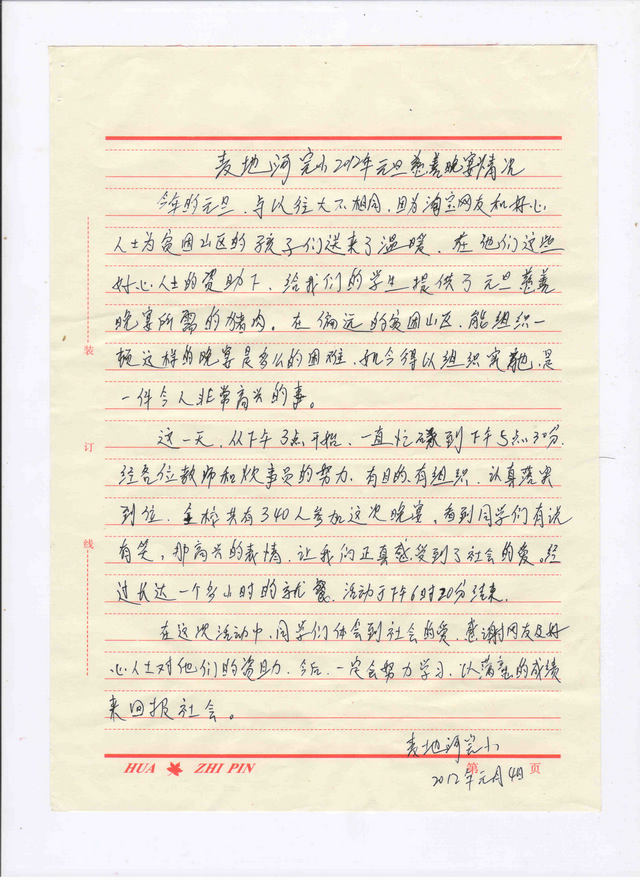 麦地河完小2012年元旦慈善晚宴情况
今年的元旦,与以往大不相同,因为淘宝网友和好心
人士为贫困山区的孩子们送来了温暖。在他们这些
好心人士的资助下,给我们的学生提供了元旦慈善
晚宴所需的猪肉。在偏远的贫困山区,能组织一
顿这样的晚宴是多么的困难,如今得以组织实施,是
一件令人非常高兴的事。
这一天,从下午3点开始,一直忙碌到下午5点30分.
经各位教师和炊事员的努力,有目的有组织,认真落实
到位,全校共有340人参加这次晚宴,看到同学们有说
有笑,那高兴的表情,让我们正真感受到了社会的爱。经
过长达一个多小时的就餐,活动于下午6时20分结束.
在这次活动中,同学们体会到社会的爱,感谢网友及好
心人士对他们的资助,今后,一定会努力学习,以的成绩
来回报社会。
麦地河完小
2012年元月4日
装
订
线
HUA ZHI PIN
第 页